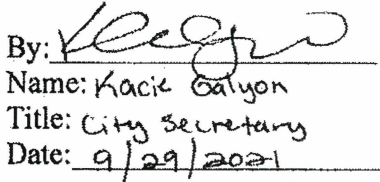 By:
Name: Kacie Galyon
Title: City Secretary
Date: 9/29/2021